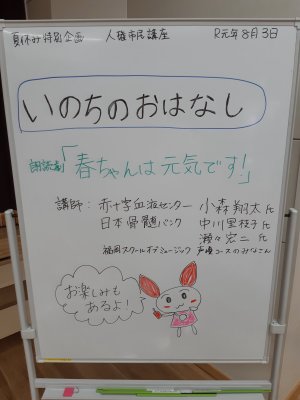 夏休み特別企画 人権市民講座 R元年8月3日
いのちのおはなし
朗読劇「春ちゃんは元気です!」
講師: 赤十字血液センター 小森翔太氏
日本骨髄バンク 中川里枝子氏
瀬々宏二氏
福岡スクールオブミュージック 声優コースのみなさん
お楽しみも
あるよ!